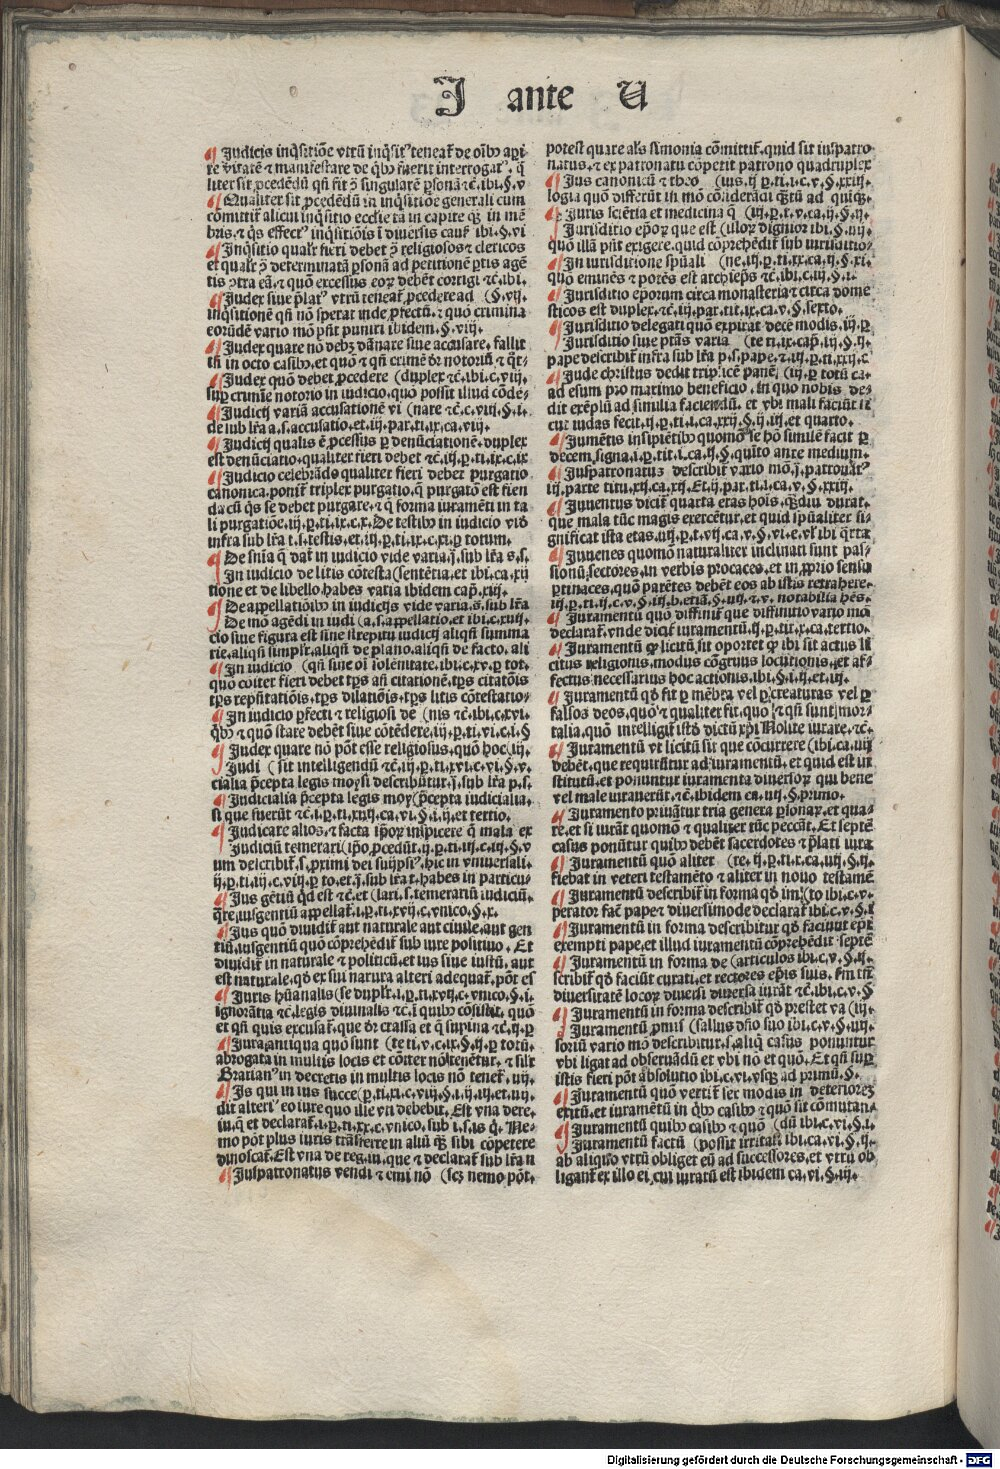 J ante U
Judicis inq̃sitiõe vtrũ inq̃sitꝰ teneat̃ de oĩbꝰ aꝑi-
re v̓itatẽ ⁊ manifestare de q̃bꝰ fuerit interrogatꝰ. q̃
liter sit ꝓcedẽdũ qñ fit ꝯ̃ singularẽ ꝑsonã ⁊c̃. ibi. §. v
Qualiter sit ꝓcedẽdũ in inq̃sitiõe generali cum
cõmittit̃ alicui inq̃sitio ecclie tã in capite qꝫ in mẽ
bris. ⁊ q̃s effectꝰ inq̃sitiõis ĩ diuersis causꝭ ibi. §. vi
Inq̃sitio qualꝛ̃ fieri debet ꝯ̃ religiosos ⁊ clericos
et qualꝛ̃ ꝯ̃ determinatã ꝑsonã ad petitionẽ ꝑtis agẽ
tis ꝯtra eã. ⁊ quõ excessus eoꝝ debẽt corrigi ⁊c̃. ibi.
Judex siue p̃latꝰ vtrũ teneat̃ ꝓcedere ad (§. vij.
inq̃sitionẽ qñ nõ sperat inde ꝓfectũ. ⁊ quõ crimina
eorũdẽ vario mõ p̃nt puniri ibidem. §. viij.
Judex quare nõ debꝫ dãnare siue accusare. fallit
tñ in octo casibꝰ. et quõ ⁊ qñ crimẽ d̓r notoriũ ⁊ q̃t-
Judex quõ debet ꝓcedere (duplex ⁊c̃. ibi. c. vij.
suꝑ crimĩe notorio in iudicio. quõ possit illud cõde-
Judicij variã accusationẽ vi (nare ⁊c̃. c. viij. §. i.
de sub lr̃a a. s. accusatio. et. iij. par. ti. ix. ca. viij.
Judicij qualis ẽ ꝓcessus ꝑ denũciationẽ. duplex
est denũciatio. qualiter fieri debet ⁊c̃. iij. ꝑ. ti. ix. c. ix
Judicio celebrãdo qualiter fieri debet purgatio
canonica. ponit̃ triplex purgatio. q̃ purgatõ est fien
da cũ q̃s se debet purgare. ⁊ q̃ forma iuramẽti in ta
li purgatiõe. iij. ꝑ. ti. ix. c. x. De testibꝰ in iudicio vid̓
infra sub lr̃a t. s. testis. et. iij. ꝑ. ti. ix. c. xi. ꝑ totum.
De sñia q̃ dat̃ in iudicio vide varia. j̃. sub lr̃a s. s.
In iudicio de litis cõtesta (sentẽtia. et ibi. ca. xij
tione et de libello habes varia ibidem cap̃. xiij.
De appellatiõibꝰ in iudicijs vide varia. s. sub lr̃a
De mõ agẽdi in iudi (a. s. appellatio. et ibi. c. xviij.
cio siue figura est sine strepitu iudicij aliqñ summa
rie. aliqñ simplꝛ̃. aliqñ de plano. aliqñ de facto. ali
In iudicio (qñ sine oĩ solẽnitate. ibi. c. xv. ꝑ tot.
quõ cõiter fieri debet tp̃s añ citationẽ. tp̃s citatõis
tp̃s rep̃sitatiõis. tp̃s dilatiõis. tp̃s litis cõtestatio-
In iudicio ꝑfecti ⁊ religiosi de (nis ⁊c̃. ibi. c. xvi.
q̃bꝰ ⁊ quõ stare debẽt siue cõtẽdere. iij. ꝑ. ti. vi. c. i. §
Judex quare nõ põt esse religiosus. quõ hoc (iij.
Judi (sit intelligendũ ⁊c̃. iij. ꝑ. ti. xvi. c. vi. §. v.
cialia p̃cepta legis moysi describũtur. j̃. sub lr̃a p. s.
Judicialia p̃cepta legis moy (p̃cepta iudicialia.
si que fuerũt ⁊c̃. i. ꝑ. ti. xiij. ca. vi. §. i. ij. et tertio.
Judicare alios. ⁊ facta ip̃oꝝ inspicere q̃ mala ex
Judiciũ temerari (ip̃o ꝓcedũt. ij. ꝑ. ti. iij. c. iij. §. v
um describit̃. s. primi dei suiip̃sꝰ. hic in vniuersali.
ij. ꝑ. ti. iij. c. viij. ꝑ to. et. j̃. sub lr̃a t. habes in particu-
Jus gẽtiũ qd̓ est ⁊c̃. et (lari. s. temerariũ iudiciũ.
q̃re iusgentiũ appellat̃. i. ꝑ. ti. xvij. c. vnico. §. x.
Jus quõ diuidit̃ aut naturale aut ciuile. aut gen
tiũ. iusgentiũ quõ cõprehẽdit̃ sub iure positiuo. Et
diuidit̃ in naturale ⁊ politicũ. et ius siue iustũ. aut
est naturale. qd̓ ex sui natura alteri adequat̃. põt es
Juris hũanalis (se duplꝛ̃. i. ꝑ. ti. xvij. c. vnico. §. i.
ignorãtia ⁊c̃. legis diuinalis ⁊c̃. ĩ quibꝰ cõsistit. quõ
et qñ quis excusat̃. que d̓r crassa et q̃ supina ⁊c̃. ij. ꝑ
Jura antiqua quõ sunt (te ti. v. c. ix. §. ij. ꝑ totũ.
abrogata in multis locis et cõiter nõ tenẽtur. ⁊ silꝛ̃
Gratianꝰ in decretis in multis locis nõ tenet̃. iij.
Is qui in ius succe (ꝑ. ti. ri. c. viij. §. i. ij. iij. et iiij.
dit alteriꝰ eo iure quo ille vti debebit. Est vna dere.
iu. q̃ et declarat̃. i. ꝑ. ti. xx. c. vnico. sub i. s. is q̃. Ne-
mo põt plus iuris trãsferre in aliũ qꝫ sibi cõpetere
dinoscat̃. Est vna de reg. iu. que ⁊ declarat̃ sub lr̃a n
Juspatronatus vendi ⁊ emi nõ (scꝫ nemo põt.
potest quare als̃ simonia cõmittit̃. quid sit iuspatro
natus. ⁊ ex patronatu cõpetit patrono quadruplex
Jus canonicũ ⁊ theo (ius. ij ꝑ. ti. i. c. v. §. xxiij.
logia quõ differũt in mõ cõsiderãdi qꝫtũ ad quiqꝫ.
Juris sciẽtia et medicina q̃ (iij. ꝑ. t. v. ca. ij. §. ij.
Jurisditio ep̃oꝝ que est (illoꝝ dignior ibi. §. iiij.
quõ illã p̃nt exigere. quid cõprehẽdit̃ sub iurisditio-
In iurisditione sp̃uali (ne. iij. ꝑ. ti. xx. ca. ij. §. xi.
quõ eminẽs ⁊ potẽs est archiep̃s ⁊c̃. ibi. c. iij. §. i.
Jurisditio ep̃orum circa monasteria ⁊ circa dome
sticos est duplex. ⁊c̃. iij. par. tit. ix. ca. v. §. sexto.
Jurisditio delegati quõ expirat decẽ modis. iij. ꝑ
Jurisditio siue ptãs varia (te ti. ix. cap̃. iij. §. ij.
pape describit̃ infra sub lr̃a p. s. pape. ⁊. iij. ꝑ. ti. xxij. c
Jude christus dedit triplicẽ panẽ (iij. ꝑ totũ ca.
ad esum pro maximo beneficio. in quo nobis de-
dit exẽplũ ad similia faciendũ. et vbi mali faciũt si
cut iudas fecit. ij. ꝑ. ti. i. ca. xxij. §. ij. iij. et quarto.
Jumẽtis insipiẽtibꝰ quomõ se hõ similẽ facit ꝑ
decem signa. i. ꝑ. tit. i. ca. ij. §. quĩto ante medium.
Juspatronatus describit̃ vario mõ. j̃. patronatꝰ
iij. parte titu. xij. ca. xij. Et. ij. par. ti. i. ca. v. §. xxiij.
Juuentus dicit̃ quarta etas hoĩs. qꝫdiu durat.
que mala tũc magis exercẽtur. et quid sp̃ualiter si-
gnificat ista etas. iij. ꝑ. t. vij. ca. v. §. vi. e. vl̓ ibi q̃rta
Juuenes quomõ naturaliter inclinati sunt pas-
sionũ sectores. in verbis procaces. et in ꝓprio sensu
ꝑtinaces. quõ parẽtes debẽt eos ab istis retrahere.
iij. ꝑ. ti. ij. c. v. §. iij. h. etiã. §. iij. ⁊. v. notabilia hẽs.
Juramentũ quõ diffinit̃ que diffinitio vario mõ
declarat̃. vnde dicit̃ iuramentũ. ij. ꝑ. tit. x. ca. tertio.
Juramentũ ꝙ licitũ sit oportet ꝙ ibi sit actus li
citus religionis. modus cõgruus locutionis. et af-
fectus necessarius hoc actionis. ibi. §. i. ij. et. iij.
Juramentũ qd̓ fit ꝑ mẽbra vel ꝑ creaturas vel ꝑ
falsos deos. quõ ⁊ qualiter fit. quo ⁊ qñ sunt mor-
talia. quõ intelligit̃ istd̓ dictũ xp̃i Nolite iurare. ⁊c̃.
Juramentũ vt licitũ sit que cõcurrere (ibi. ca. iiij
debẽt. que requirũtur ad iuramentũ. et quid est in
stitutũ. et ponuntur iuramenta diuersoꝝ qui bene
vel male iurauerũt. ⁊c̃. ibidem ca. iiij. §. primo.
Juramento priuãtur tria genera ꝑsonaꝝ. et qua-
re. et si iurãt quomõ ⁊ qualiter tũc peccãt. Et septẽ
casus ponũtur quibꝰ debẽt sacerdotes ⁊ p̃lati iura
Juramentũ quõ aliter (re. ij. ꝑ. ti. x. ca. iiij. §. ij.
fiebat in veteri testamẽto ⁊ aliter in nouo testamẽ
Juramentũ describit̃ in forma qd̓ im (to ibi. c. v.
perator fac̃ pape ⁊ diuersimode declarat̃ ibi. c. v. §. i
Juramentũ in forma describitur qd̓ faciunt ep̃i
exempti pape. et illud iuramentũ cõprehẽdit septẽ
Juramentũ in forma de (articulos ibi. c. v. §. ij.
scribit̃ qd̓ faciũt curati. et rectores ep̃is suis. ẜm tñ
diuersitatẽ locoꝝ diuersi diuersa iurãt ⁊c̃. ibi. c. v. §
Juramentũ in forma describit̃ qd̓ prestet va (iij.
Juramentũ ꝓmis (sallus dño suo ibi. c. v. §. iiij.
soriũ vario mõ describitur. s. aliq̃ casus ponuntur
vbi ligat ad obseruãdũ et vbi nõ et quõ. Et qñ suꝑ
istis fieri põt absolutio ibi. c. vi. vsqꝫ ad primũ. §.
Juramentũ quõ vertit̃ ser modis in deteriorẽ
exitũ. et iuramẽtũ in q̃bꝰ casibꝰ ⁊ quõ sit cõmutan-
Juramentũ quibꝰ casibꝰ ⁊ quõ (dũ ibi. c. vi. §. i.
Juramentũ factũ (possit irritari ibi. ca. vi. §. ij.
ab aliquo vtrũ obliget eũ ad successores. et vtrũ ob
ligant̃ ex illo ei. cui iuratũ est ibidem ca. vi. §. iij.
Digitalisierung gefördert durch die Deutsche Forschungsgemeinschaft - DFG